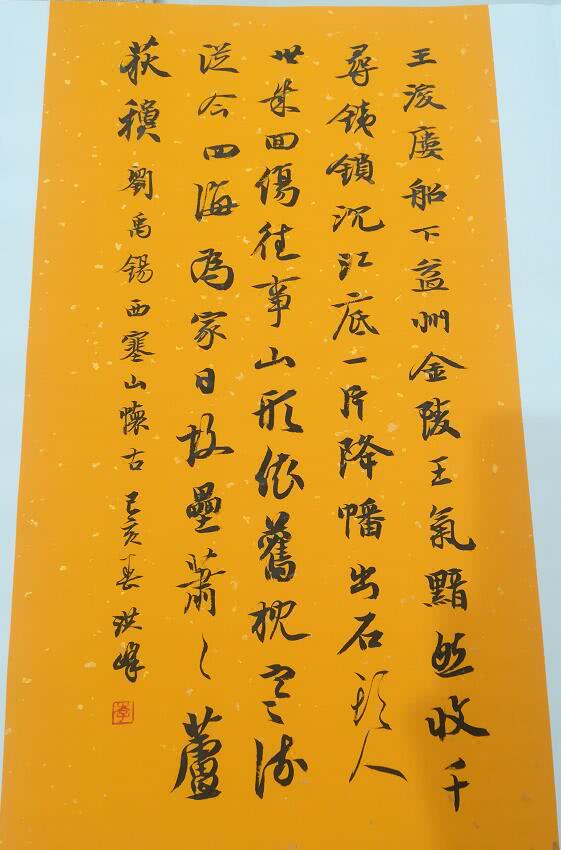 王濬廔船下益州金陵王氣黯然收千
尋鐵鎖沉江底一片降幡出石頭人
世幾回傷往事山形依舊枕寒流
從今四海為家日故壘蕭〻蘆
荻穐劉禹錫西塞山懷古己亥春洪峰